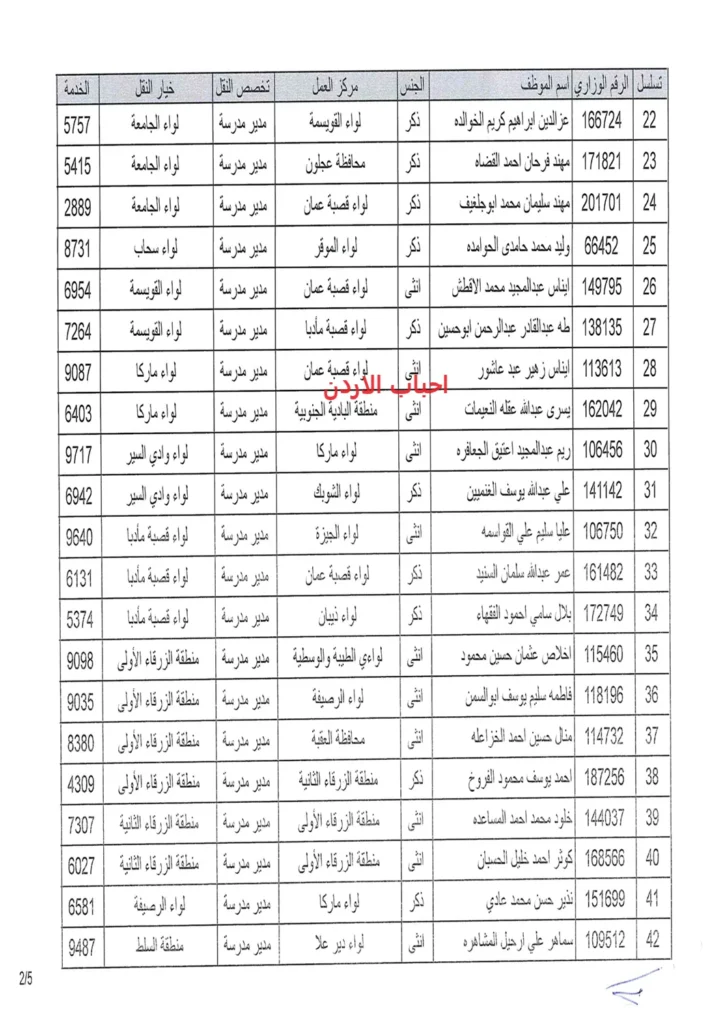 تسلسل الرقم الوزاري اسم الموظف الجنس مركز العمل تخصص النقل خيار النقل الخدمة
22 166724 عزالدين ابراهيم كريم الخوالده ذكر لواء القويسمة مدير مدرسة لواء الجامعة 5757
23 171821 مهند فرحان احمد القضاه ذكر محافظة عجلون مدير مدرسة لواء الجامعة 5415
24 201701 مهند سليمان محمد ابوجلغيف ذكر لواء قصبة عمان مدير مدرسة لواء الجامعة 2889
25 66452 وليد محمد حامدى الحوامده ذكر لواء الموقر مدير مدرسة لواء سحاب 8731
26 149795 ايناس عبدالمجيد محمد الاقطش انثى لواء قصبة عمان مدير مدرسة لواء القويسمة 6954
27 138135 طه عبدالقادر عبدالرحمن ابوحسين ذكر لواء قصبة مأدبا مدير مدرسة لواء القويسمة 7264
28 113613 ايناس زهير عبد عاشور انثى لواء قصبة عمان مدير مدرسة لواء ماركا 9087
احباب الاردن
29 162042 يسرى عبدالله عقله النعيمات انثى منطقة البادية الجنوبية مدير مدرسة لواء ماركا 6403
30 106456 ريم عبدالمجيد اعتيق الجعافره انثى لواء ماركا مدير مدرسة لواء وادي السير 9717
31 141142 علي عبدالله يوسف الغنميين ذكر لواء الشوبك مدير مدرسة لواء وادي السير 6942
32 106750 عليا سليم علي القواسمه انثى لواء الجيزة مدير مدرسة لواء قصبة مأدبا 9640
33 161482 عمر عبدالله سلمان السنيد ذكر لواء قصبة عمان مدير مدرسة لواء قصبة مأدبا 6131
34 172749 بلال سامي احمود الفقهاء ذكر لواء ذيبان مدير مدرسة لواء قصبة مأدبا 5374
35 115460 اخلاص عثمان حسين محمود انثى لواءي الطيبة والوسطية مدير مدرسة منطقة الزرقاء الأولى 9098
36 118196 فاطمه سليم يوسف ابوالسمن انثى لواء الرصيفة مدير مدرسة منطقة الزرقاء الأولى 9035
37 114732 منال حسين احمد الخزاعله انثى محافظة العقبة مدير مدرسة منطقة الزرقاء الأولى 8380
38 187256 احمد يوسف محمود الفروخ ذكر منطقة الزرقاء الثانية مدير مدرسة منطقة الزرقاء الأولى 4309
39 144037 خلود محمد احمد المساعده انثى منطقة الزرقاء الأولى مدير مدرسة منطقة الزرقاء الثانية 7307
40 168566 كوثر احمد خليل الحسبان انثى منطقة الزرقاء الأولى مدير مدرسة منطقة الزرقاء الثانية 6027
41 151699 نذير حسن محمد عادي ذكر لواء ماركا مدير مدرسة لواء الرصيفة 6581
42 109512 سماهر علي ارحيل المشاهره انثى لواء دير علا مدير مدرسة منطقة السلط 9487
2/5